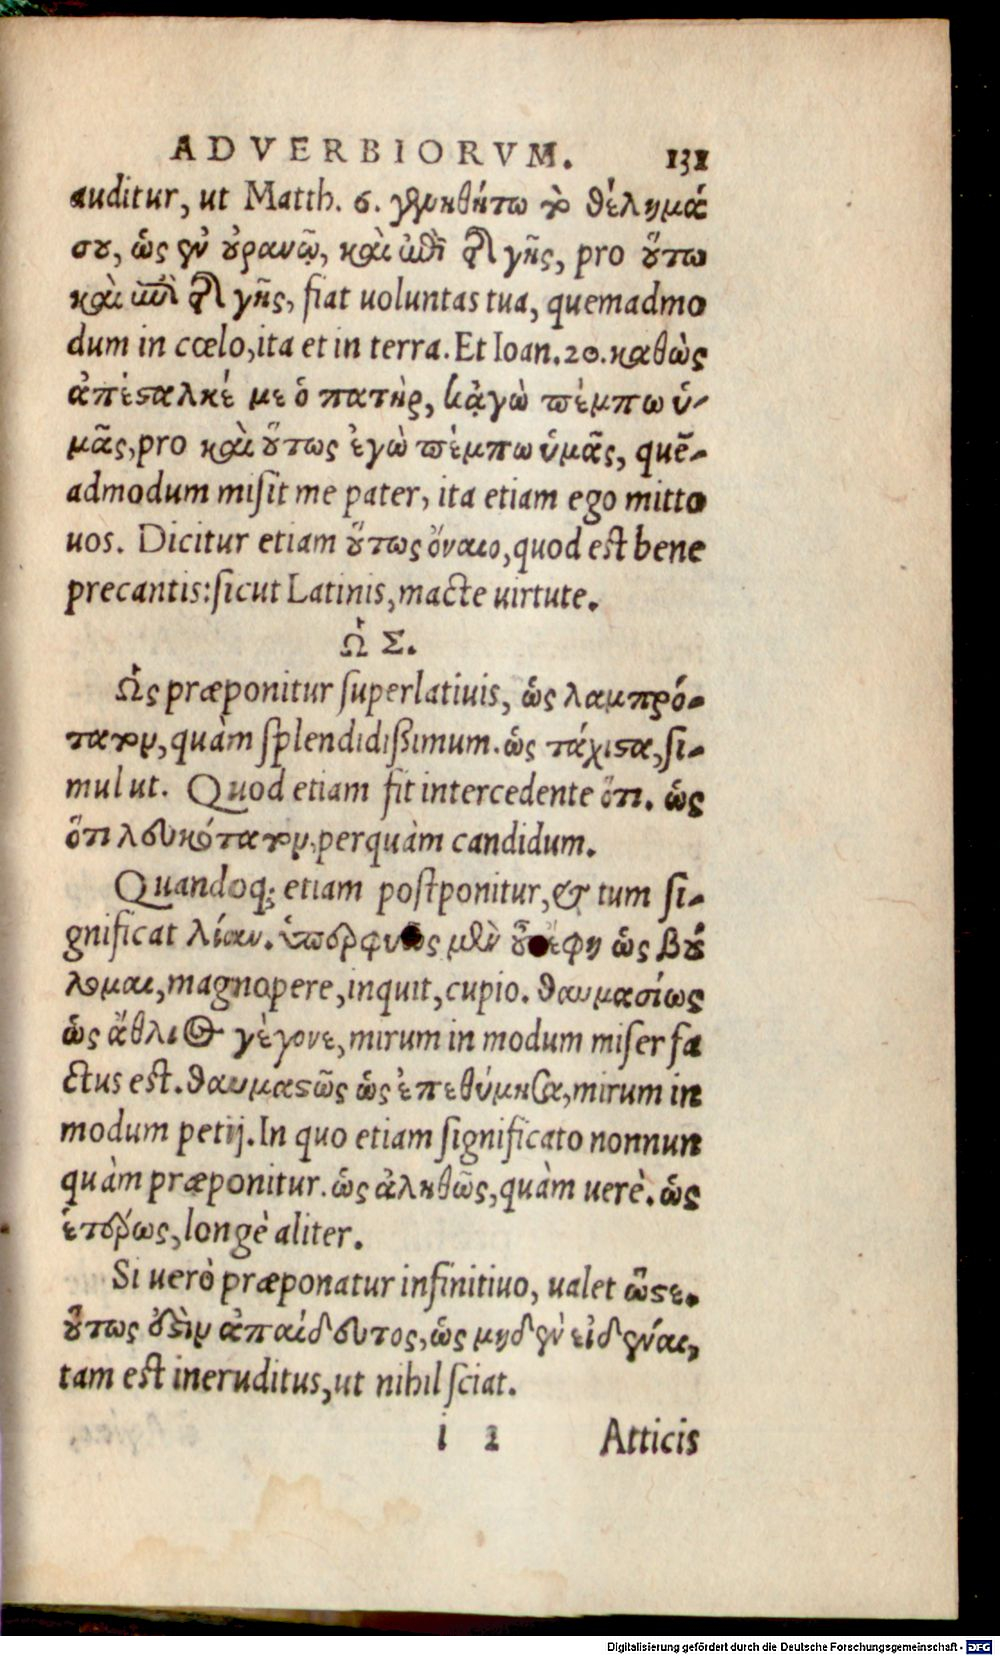 ADVERBIORVM. 131
auditur, ut Matth. 6. γενηθήτω τὸ θέλημά
σου, ὡς ἐν οὐρανῷ, καὶ ἐπὶ τῆς γῆς, pro οὕτω
καὶ ἐπὶ τῆς γῆς, fiat uoluntas tua, quemadmo
dum in cœlo, ita et in terra. Et Ioan. 20. καθὼς
ἀπέσταλκέ με ὁ πατὴρ, κᾀγὼ πέμπω ὑ-
μᾶς, pro καὶ οὕτως ἐγὼ πέμπω ὑμᾶς, quẽ-
admodum misit me pater, ita etiam ego mitto
uos. Dicitur etiam οὕτως ὄναιο, quod est bene
precantis: sicut Latinis, macte uirtute.
ὩΣ.
Ὡς præponitur superlatiuis, ὡς λαμπρό-
τατον, quàm splendidißimum. ὡς τάχιστα, si-
mul ut. Quod etiam fit intercedente ὅτι. ὡς
ὅτι λευκότατον, perquàm candidum.
Quandoq; etiam postponitur, & tum si-
gnificat λίαν. ὑπερφυῶς μὲν οὖν ἔφη ὡς βού
λομαι, magnopere, inquit, cupio. θαυμασίως
ὡς ἄθλιος γέγονε, mirum in modum miser fa
ctus est. θαυμαστῶς ὡς ἐπεθύμησα, mirum in
modum petij. In quo etiam significato nonnun
quàm præponitur. ὡς ἀληθῶς, quàm uerè. ὡς
ἑτέρως, longè aliter.
Si uerò præponatur infinitiuo, ualet ὥστε.
οὕτως ἐστὶν ἀπαίδευτος, ὡς μηδὲν εἰδέναι,
tam est ineruditus, ut nihil sciat.
i 2 Atticis
Digitalisierung gefördert durch die Deutsche Forschungsgemeinschaft - DFG